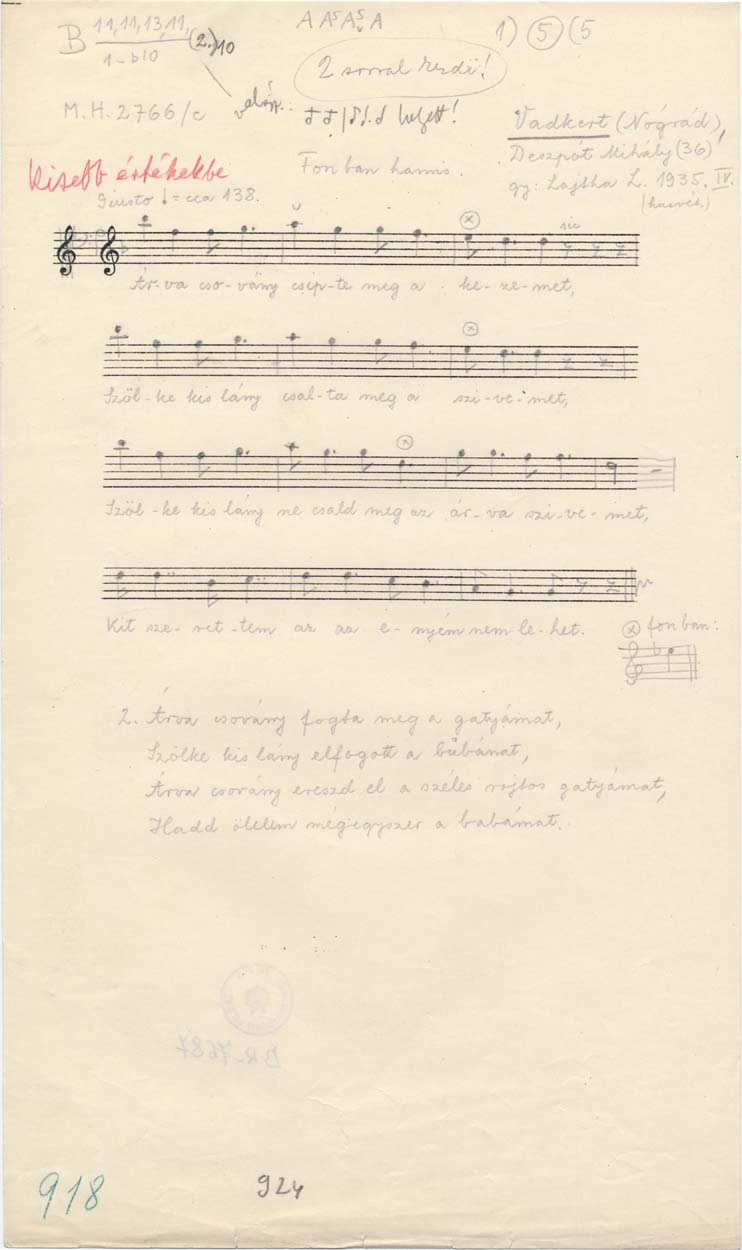 B 11, 11, 13, 11, (2.) 10
1 – b10
A A⁵ A⁵ᵥ A
1) (5) (5
2 sorral kezdi!
M.H. 2766/c
helyett!
Vadkert (Nógrád),
Deszpót Mihály (36)
gy: Lajtha L. 1935. IV.
kisebb értékekbe
Fonban hamis.
Giusto ♩ = cca 138.
sic
Ár-va cso-vány csíp-te meg a ke-ze-met,
Szöl-ke kis lány csal-ta meg a szi-ve-met,
Szöl-ke kis lány ne csald meg az ár-va szi-ve-met,
Kit sze-ret-tem az az e-nyém nem le-het.
ⓧ fonban:
2. Árva csovány fogta meg a gatyámat,
Szölke kis lány elfogott a búbánat,
Árva csovány ereszd el a széles rojtos gatyámat,
Hadd ölelem mégegyszer a babámat.
BR-7687
918
924